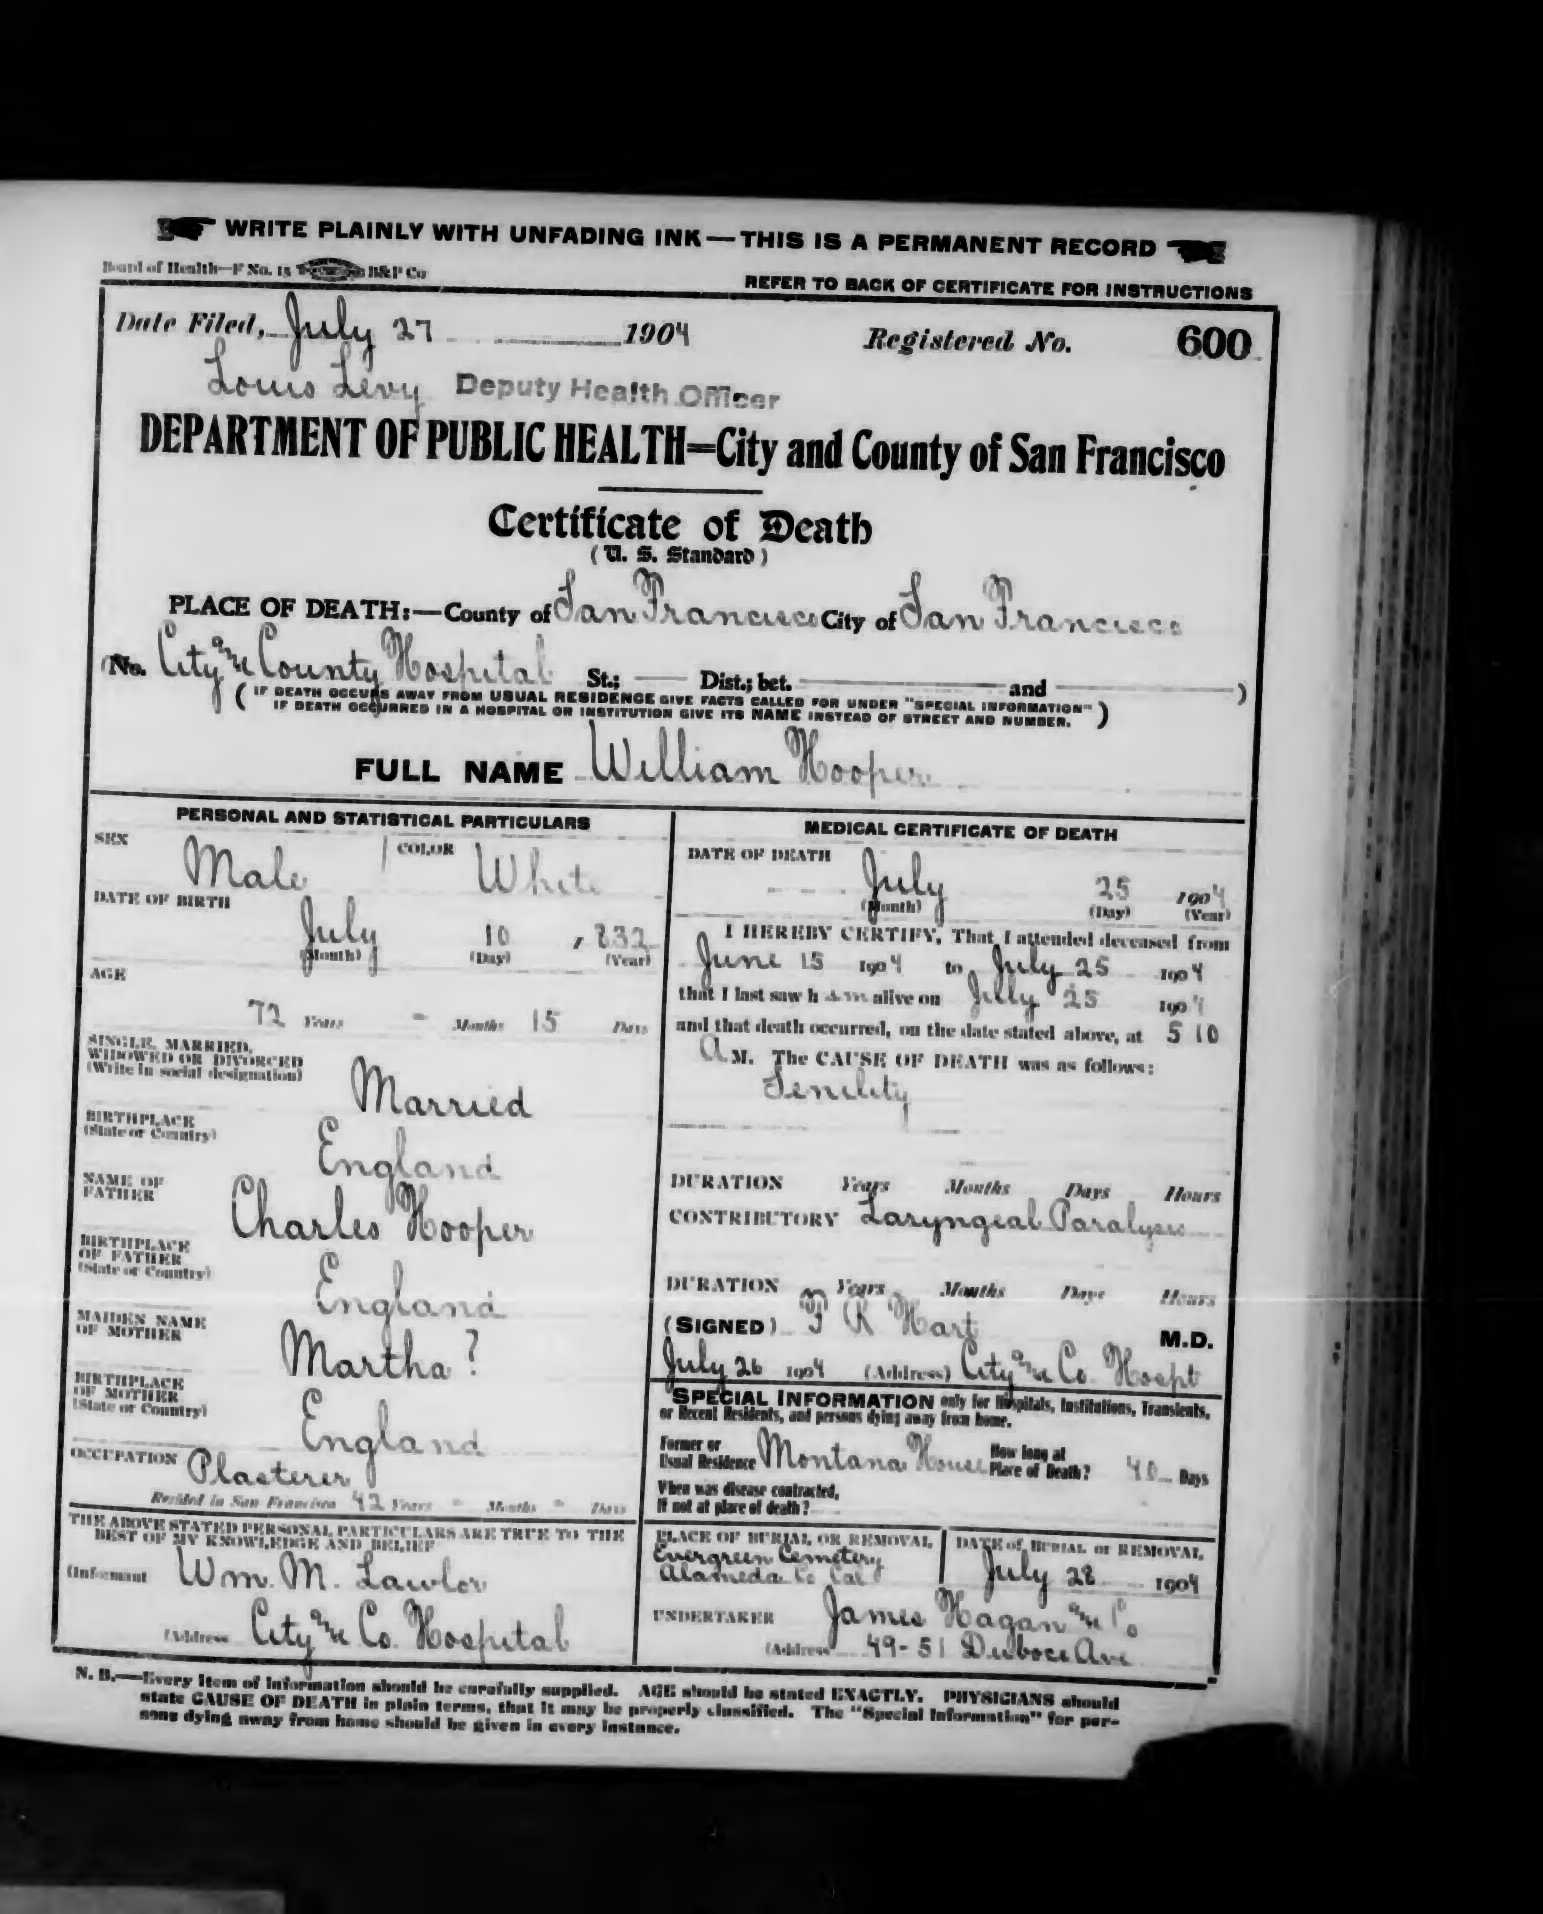 WRITE PLAINLY WITH UNFADING INK—THIS IS A PERMANENT RECORD
Board of Health—F No. 15 H&P Co
REFER TO BACK OF CERTIFICATE FOR INSTRUCTIONS
Date Filed, July 27 1904 Registered No. 600
Louis Levy Deputy Health Officer
DEPARTMENT OF PUBLIC HEALTH=City and County of San Francisco
Certificate of Death
(U. S. Standard)
PLACE OF DEATH:—County of San Francisco City of San Francisco
(No. City and County Hospital St.; Dist.; bet. and )
( IF DEATH OCCURS AWAY FROM USUAL RESIDENCE GIVE FACTS CALLED FOR UNDER "SPECIAL INFORMATION"
IF DEATH OCCURRED IN A HOSPITAL OR INSTITUTION GIVE ITS NAME INSTEAD OF STREET AND NUMBER. )
FULL NAME William Hooper
PERSONAL AND STATISTICAL PARTICULARS
SEX Male COLOR White
DATE OF BIRTH
July 10 , 832
(Month) (Day) (Year)
AGE
72 Years - Months 15 Days
SINGLE, MARRIED,
WIDOWED OR DIVORCED
(Write in social designation)
Married
BIRTHPLACE
(State or Country)
England
NAME OF
FATHER
Charles Hooper
BIRTHPLACE
OF FATHER
(State or Country)
England
MAIDEN NAME
OF MOTHER
Martha ?
BIRTHPLACE
OF MOTHER
(State or Country)
England
OCCUPATION Plasterer
Resided in San Francisco 42 Years - Months - Days
THE ABOVE STATED PERSONAL PARTICULARS ARE TRUE TO THE
BEST OF MY KNOWLEDGE AND BELIEF
(Informant Wm. M. Lawlor
(Address City and Co. Hospital
MEDICAL CERTIFICATE OF DEATH
DATE OF DEATH
July 25 1904
(Month) (Day) (Year)
I HEREBY CERTIFY, That I attended deceased from
June 15 1904 to July 25 1904
that I last saw h im alive on July 25 1904
and that death occurred, on the date stated above, at 5 10
A M. The CAUSE OF DEATH was as follows:
Senility
DURATION Years Months Days Hours
CONTRIBUTORY Laryngeal Paralysis
DURATION Years Months Days Hours
(SIGNED) F R Hart M.D.
July 26 1904 (Address) City and Co. Hospt
SPECIAL INFORMATION only for Hospitals, Institutions, Transients,
or Recent Residents, and persons dying away from home.
Former or
Usual Residence Montana House
How long at
Place of Death? 40 Days
When was disease contracted,
If not at place of death?
PLACE OF BURIAL OR REMOVAL
Evergreen Cemetery
Alameda Co Cal
DATE of BURIAL or REMOVAL
July 28 1904
UNDERTAKER James Hagan and Co
(Address 49-51 Duboce Ave
N. B.—Every item of information should be carefully supplied. AGE should be stated EXACTLY. PHYSICIANS should
state CAUSE OF DEATH in plain terms, that it may be properly classified. The "Special Information" for per-
sons dying away from home should be given in every instance.